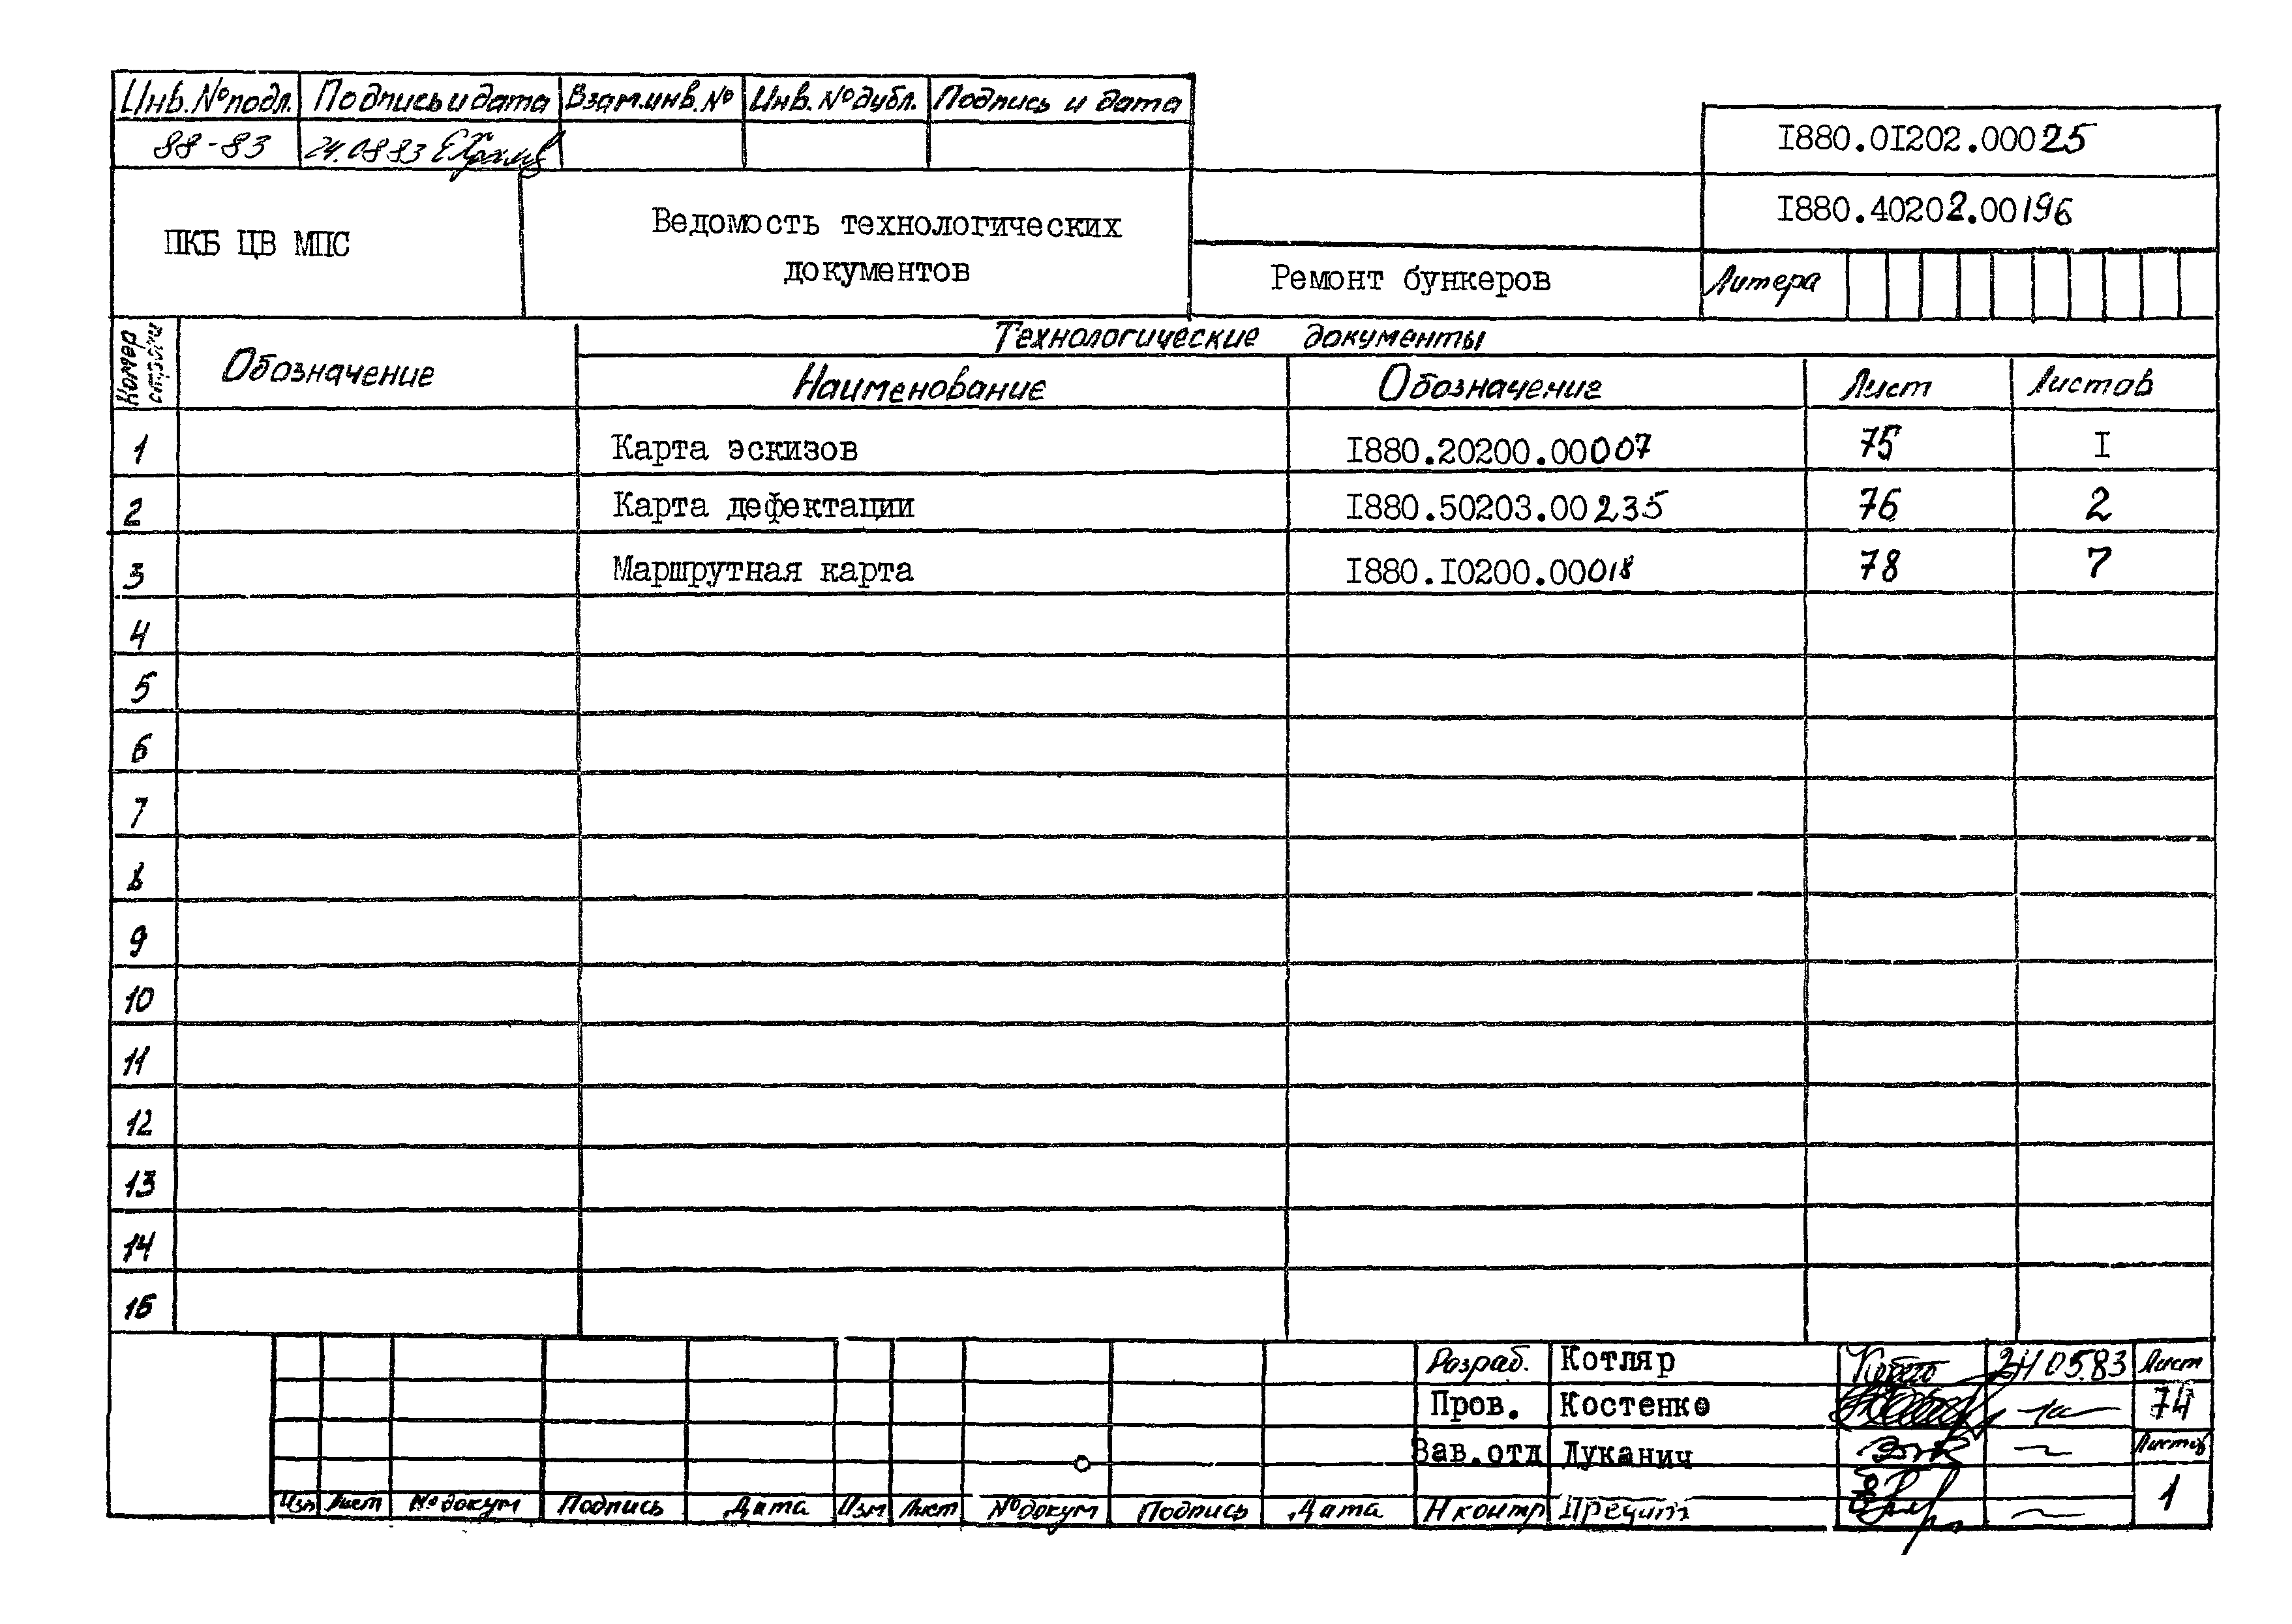 Инв.№подл. Подпись и дата Взам.инв.№ Инв.№дубл. Подпись и дата
88-83 24.08 83
I880.0I202.00025
I880.40202.00196
ПКБ ЦВ МПС
Ведомость технологических
документов
Ремонт бункеров
Литера
Номер строки
Обозначение
Технологические документы
Наименование Обозначение Лист Листов
1 Карта эскизов I880.20200.00007 75 I
2 Карта дефектации I880.50203.00235 76 2
3 Маршрутная карта I880.I0200.00018 78 7
4
5
6
7
8
9
10
11
12
13
14
15
Разраб. Котляр 24 05.83 Лист
Пров. Костенко 74
Зав.отд Луканич Листов
Изм Лист № докум Подпись Дата Изм Лист № докум Подпись Дата Н контр 1